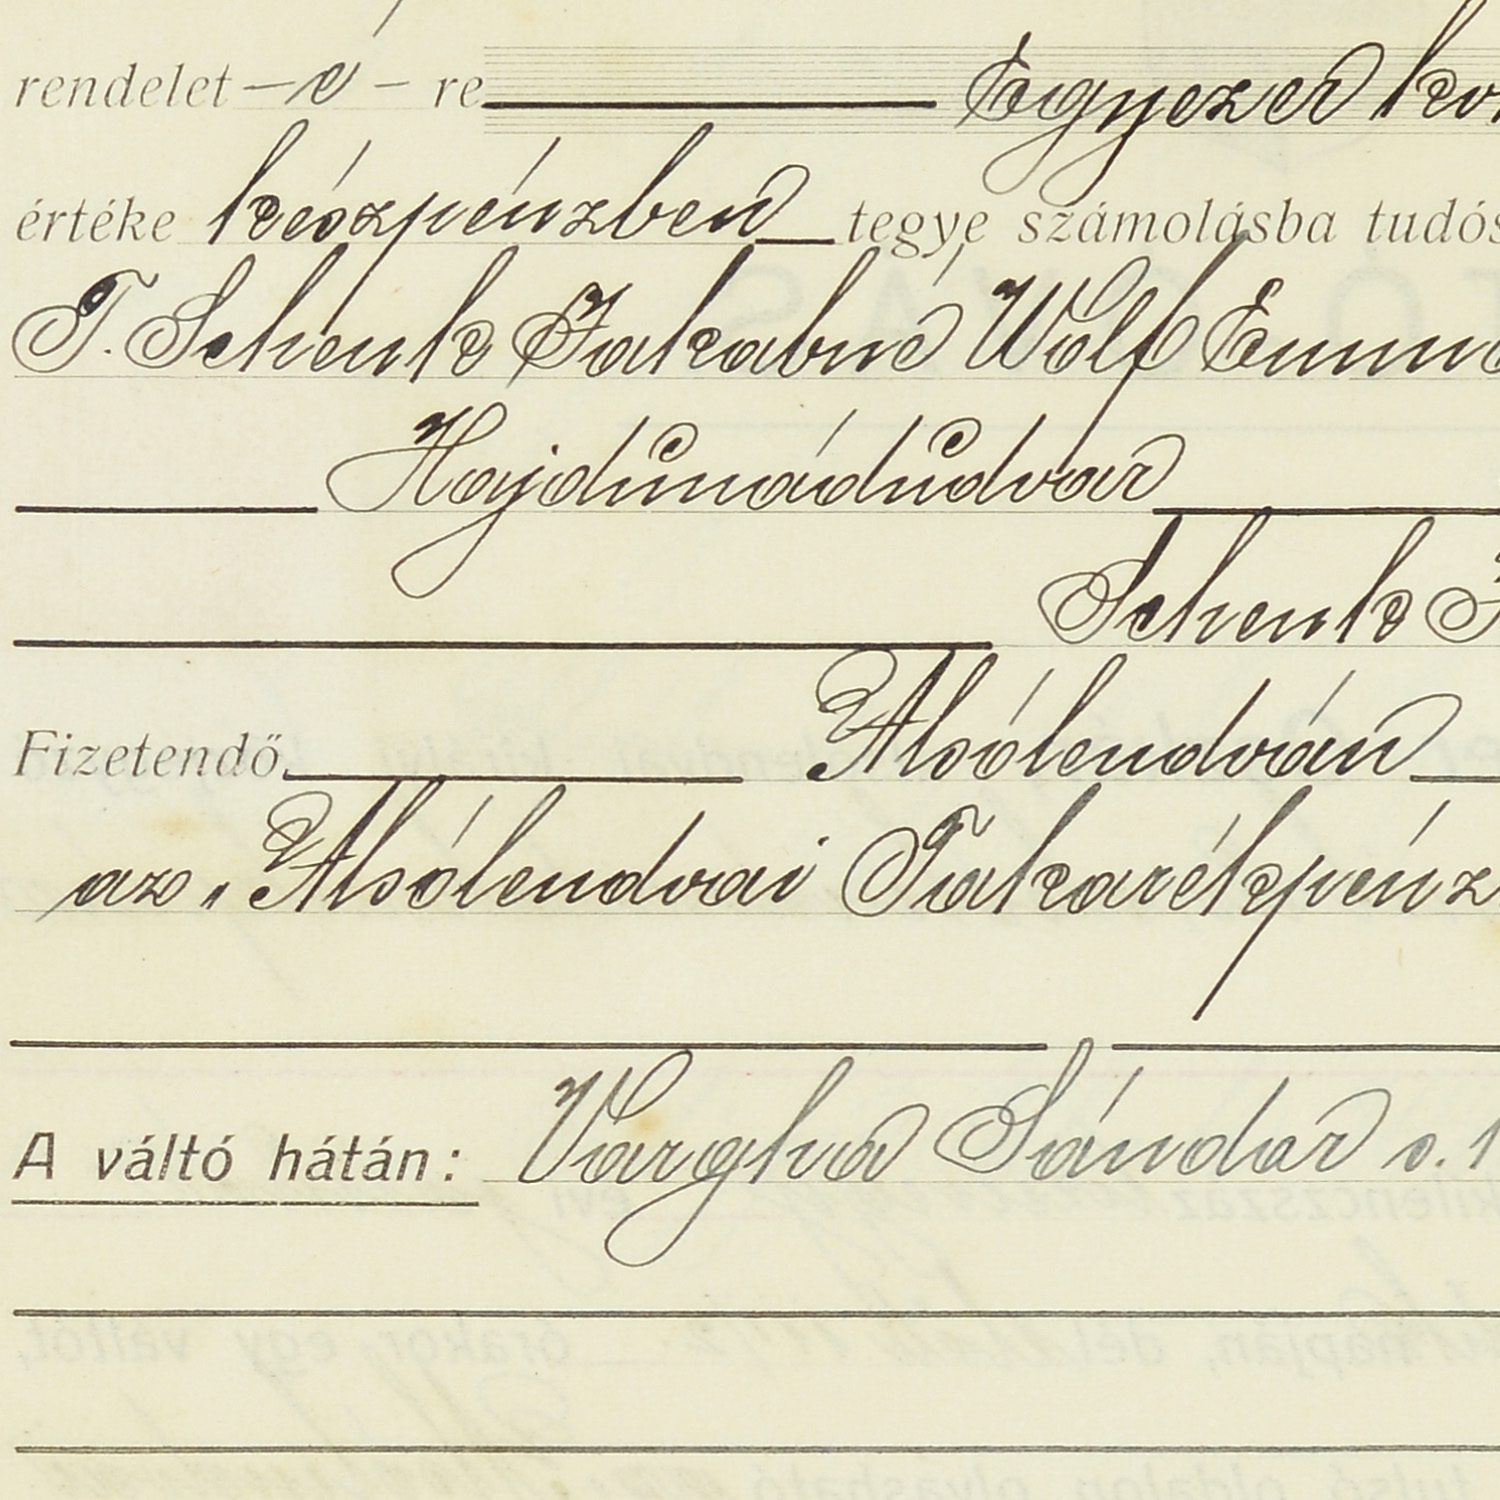 rendelet – é – re Egyezer
értéke készpénzben tegye számolásba
T. Schenk Jakabné Wolf Emma
Hajdúnádudvar
Schenk
Fizetendő Alsólendván
az „Alsólendvai Takarékpénz
A váltó hátán: Vargha Sándor s.